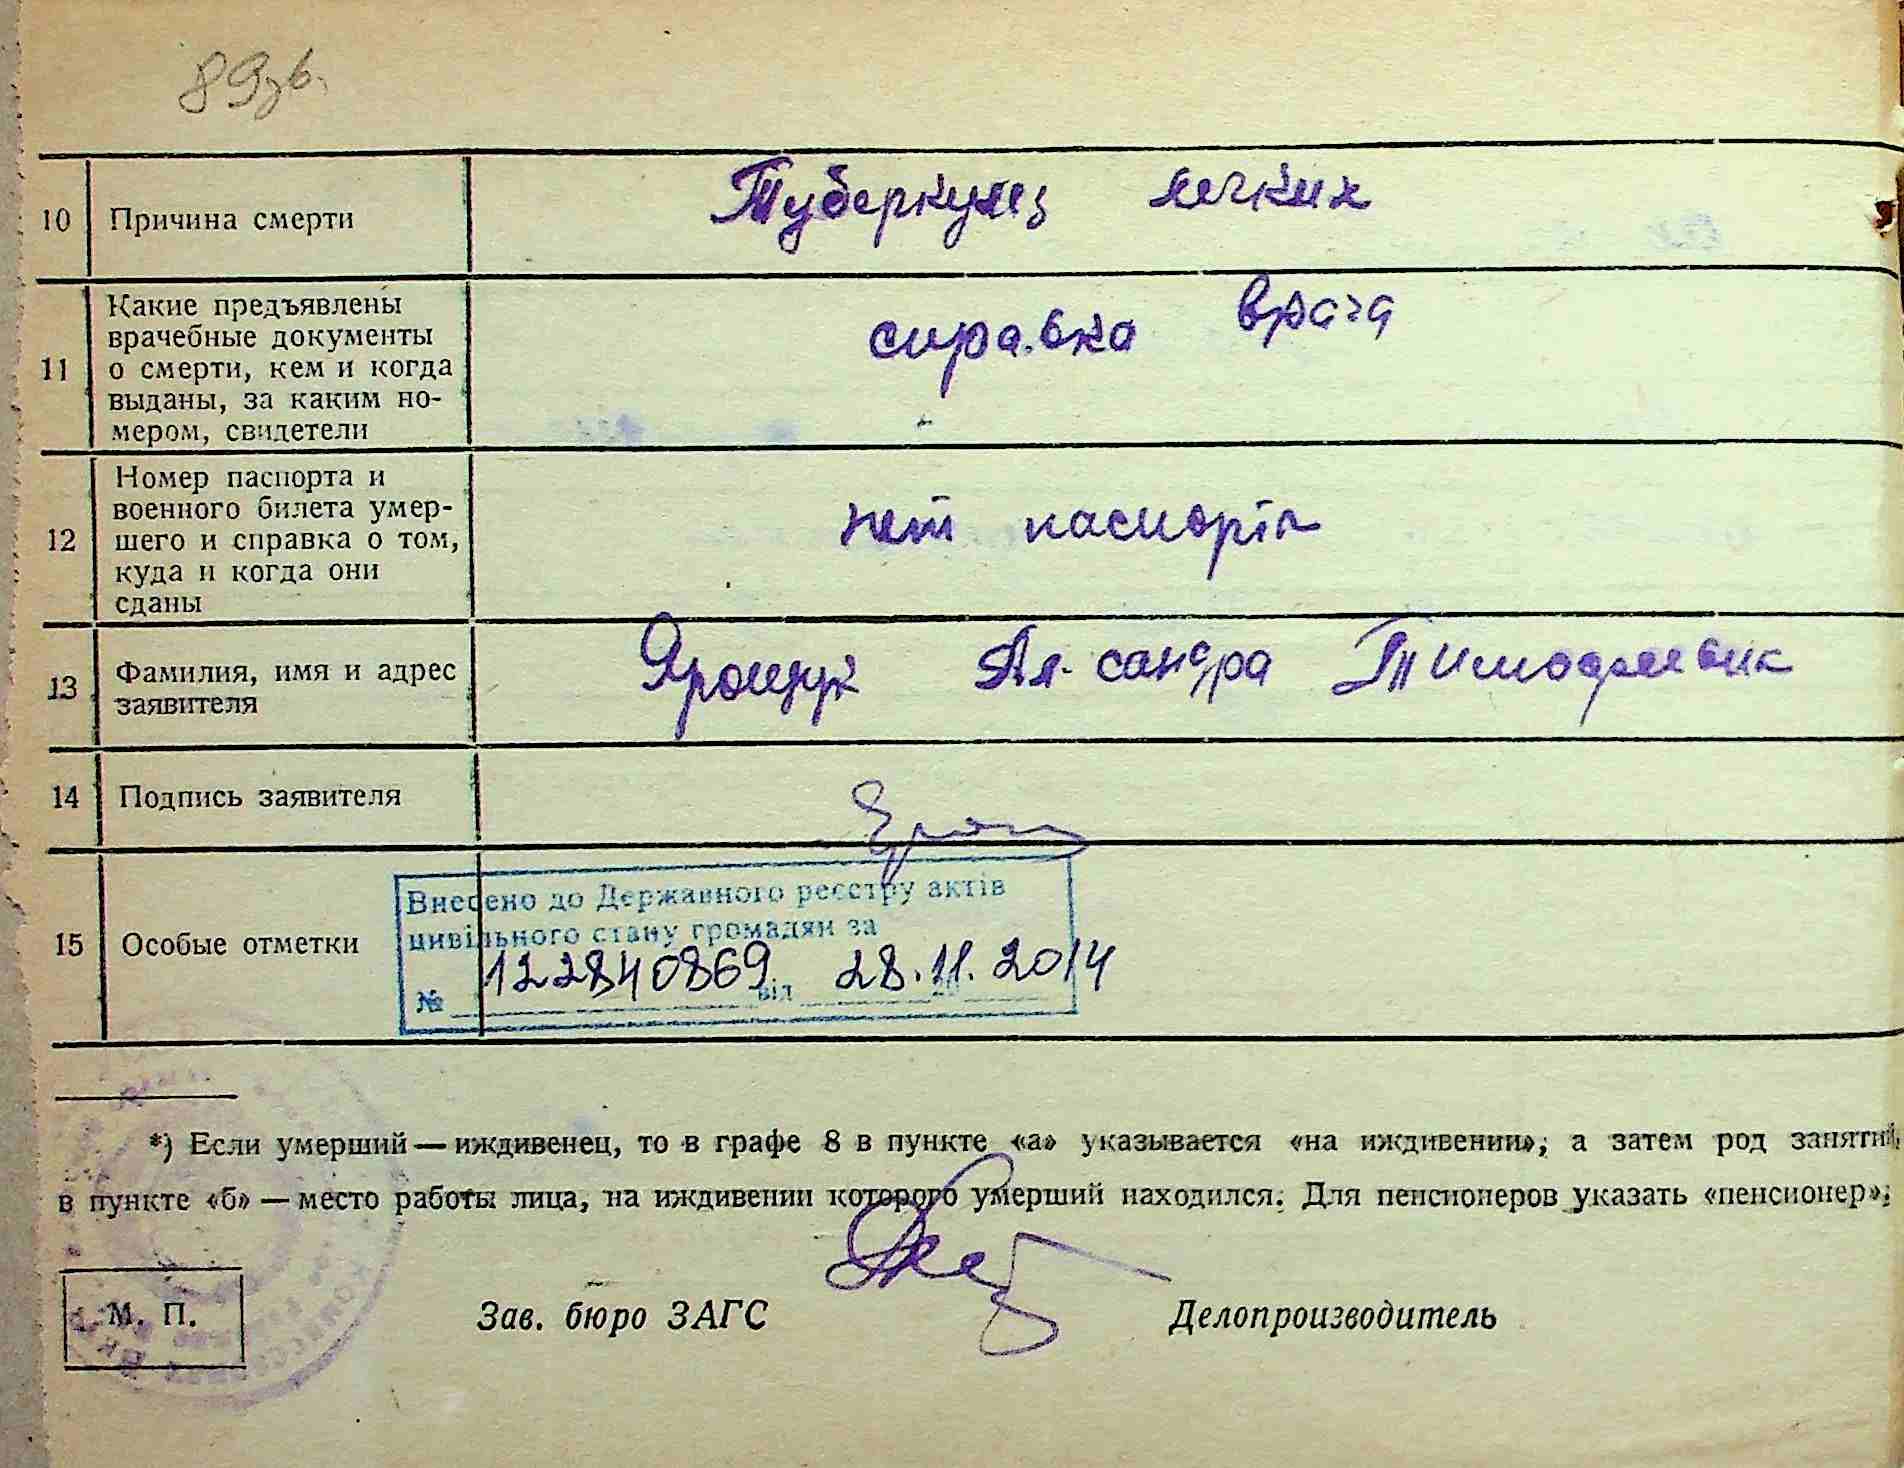 89зв.
10 Причина смерти Туберкулез легких
11 Какие предъявлены
врачебные документы
о смерти, кем и когда
выданы, за каким но-
мером, свидетели
справка врача
12 Номер паспорта и
военного билета умер-
шего и справка о том,
куда и когда они
сданы
нет паспорта
13 Фамилия, имя и адрес
заявителя
Ярощук Ал-сандра Тимофеевик
14 Подпись заявителя
15 Особые отметки
Внесено до Державного реєстру актів
цивільного стану громадян за
№ 122840869 від 28.11.2014
*) Если умерший — иждивенец, то в графе 8 в пункте «а» указывается «на иждивении», а затем род занятий,
в пункте «б» — место работы лица, на иждивении которого умерший находился. Для пенсионеров указать «пенсионер».
М. П. Зав. бюро ЗАГС Делопроизводитель